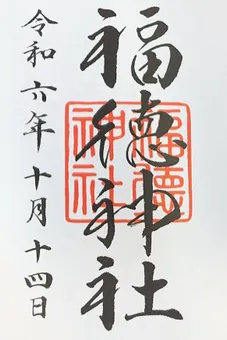 福徳神社
福徳神社
令和六年十月十四日